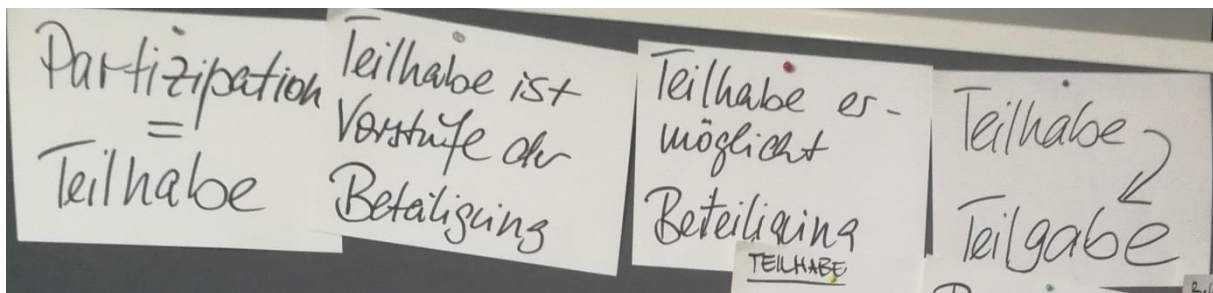 Partizipation
=
Teilhabe
Teilhabe ist
Vorstufe der
Beteiligung
Teilhabe er-
möglicht
Beteiligung
TEILHABE
Teilhabe
Teilgabe